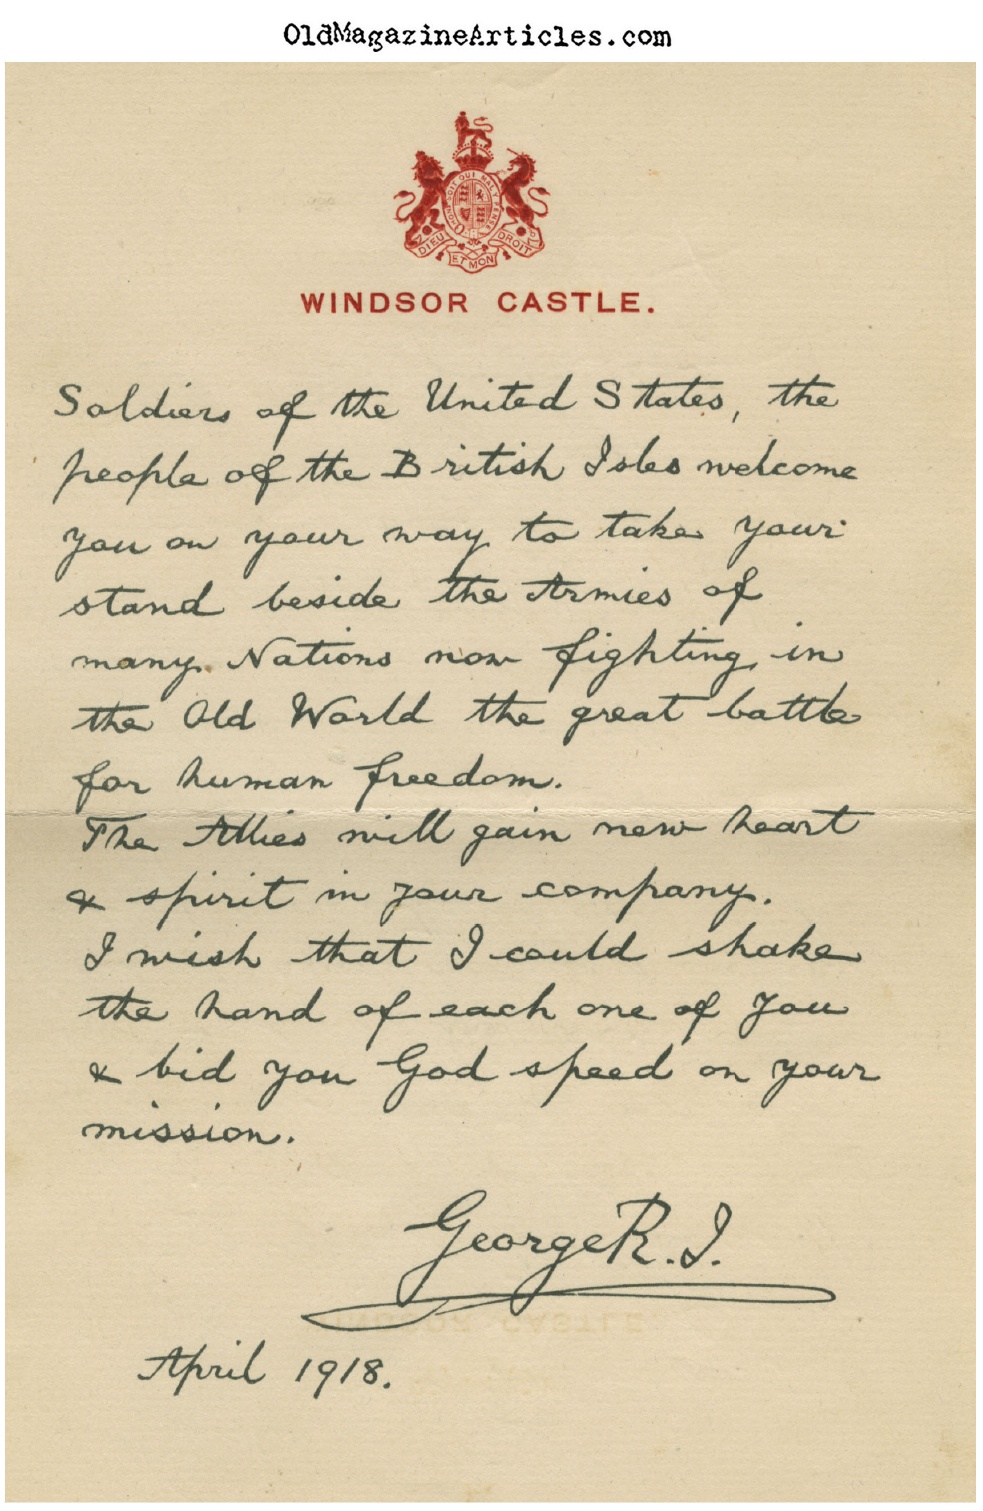 OldMagazineArticles.com
HONI SOIT QUI MAL Y PENSE
DIEU ET MON DROIT
WINDSOR CASTLE.
Soldiers of the United States, the
people of the British Isles welcome
you on your way to take your
stand beside the Armies of
many Nations now fighting in
the Old World the great battle
for human freedom.
The Allies will gain new heart
& spirit in your company.
I wish that I could shake
the hand of each one of you
& bid you God speed on your
mission.
George R.I.
April 1918.